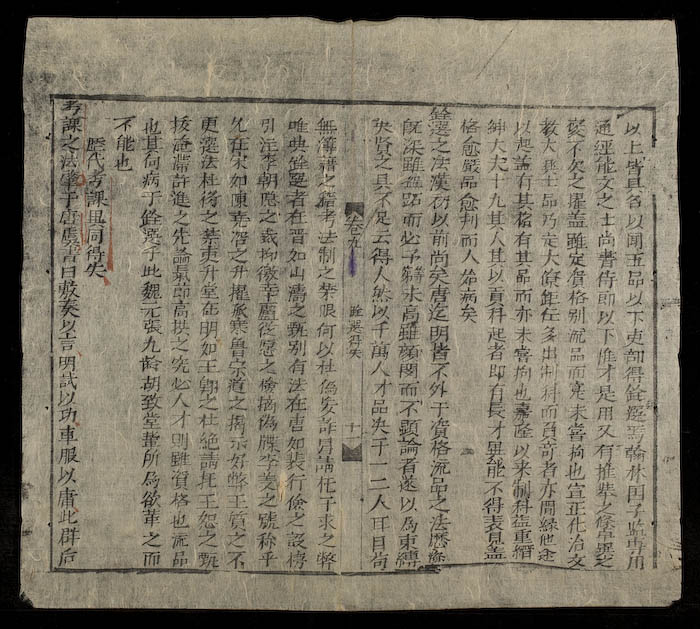 以上皆具名以聞五品以下吏部得銓選焉翰林国子监專用
通經能文之士尚書侍郎以下惟才是用又有推舉之條舉之
不欠之擢盖雖定資格别流品而寔未嘗拘也宣正化治文
教大興士品乃定大僚钜任多出制科而貟奇者亦間緣他途
以起盖有其格有其品而亦未嘗拘也嘉隆以来制科益重縉
紳大夫十九其人其以貢科起者即有長才異能不得表見盖
格愈嚴品愈判而人始病矣
銓選之法漢初以前尚矣唐迄明皆不外于資格流品之法歷
既深雖盜跖而必予籍未高雖顔閔而不顕論者遂以為束縛
矣賢之具不足云得人然以千萬人才品决于一二人耳目苟
無簿籍之籍考法制之禁限何以杜偽妄奸肩請托干求之弊
唯典銓選者在晋如山濤之甄别有法在唐如裴行儉之設榜
引注李朝隠之裁抑徼幸盧從愿之檢擿偽牒李乂之號稱平
允在宋如陳堯咨之升擢孤寒魯宗道之揭示好弊王質之不
更選法杜衍之禁吏升堂在明如王翱之杜絶請牟王恕之甄
拔淹滯許進之先論氣節高拱之先必人才則雖資格也流品
也其何病于銓選乎此魏元張九齡胡致堂軰所為欲革之而
不能也
歷代考課異同得失
考課之法肇于唐虞書曰敷奏以言明試以功車服以庸此群后
卷九
銓選得失
十一